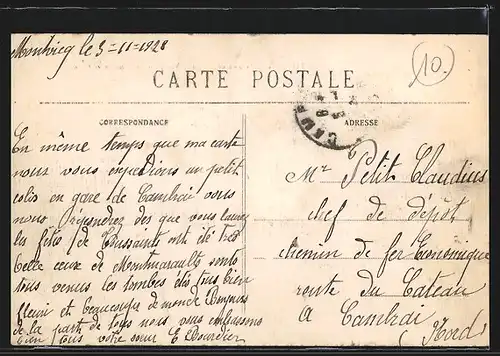 Montvicq le 3-11-1928
10.
CARTE POSTALE
CORRESPONDANCE
ADRESSE
En même temps que ma carte
nous vous expedions un petit
colis en gare de Cambrai vous
nous reponderez des que vous l'aurez
les fetes de Toussaints ont été tres
belle ceux de Montmaraults sont
tous venus les tombes etes tous bien
fleuri et beaucoup de monde
de la part de tous nous vous embrassons
bien tous votre sœur E Bourdier
Mr Petit Claudius
chef de dépôt
chemin de fer Economique
route du Cateau
a Cambrai
(Nord)